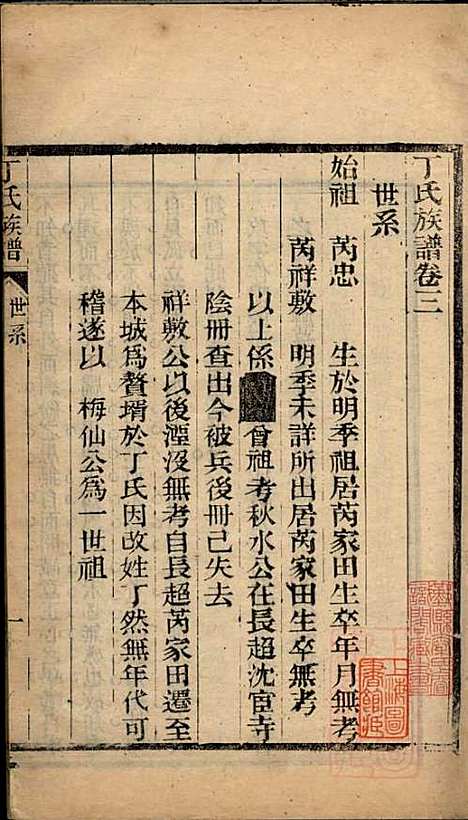 丁氏族譜卷三
世系
始祖 芮忠 生於明季祖居芮家田生卒年月無考
芮祥敷 明季未詳所出居芮家田生卒無考
以上係 曾祖考秋水公在長超沈宦寺
陰冊查出今被兵後冊已失去
祥敷公以後湮沒無考自長超芮家田遷至
本城為贅壻於丁氏因改姓丁然無年代可
稽遂以 梅仙公為一世祖
丁氏族譜 世系 一
上海圖書館藏